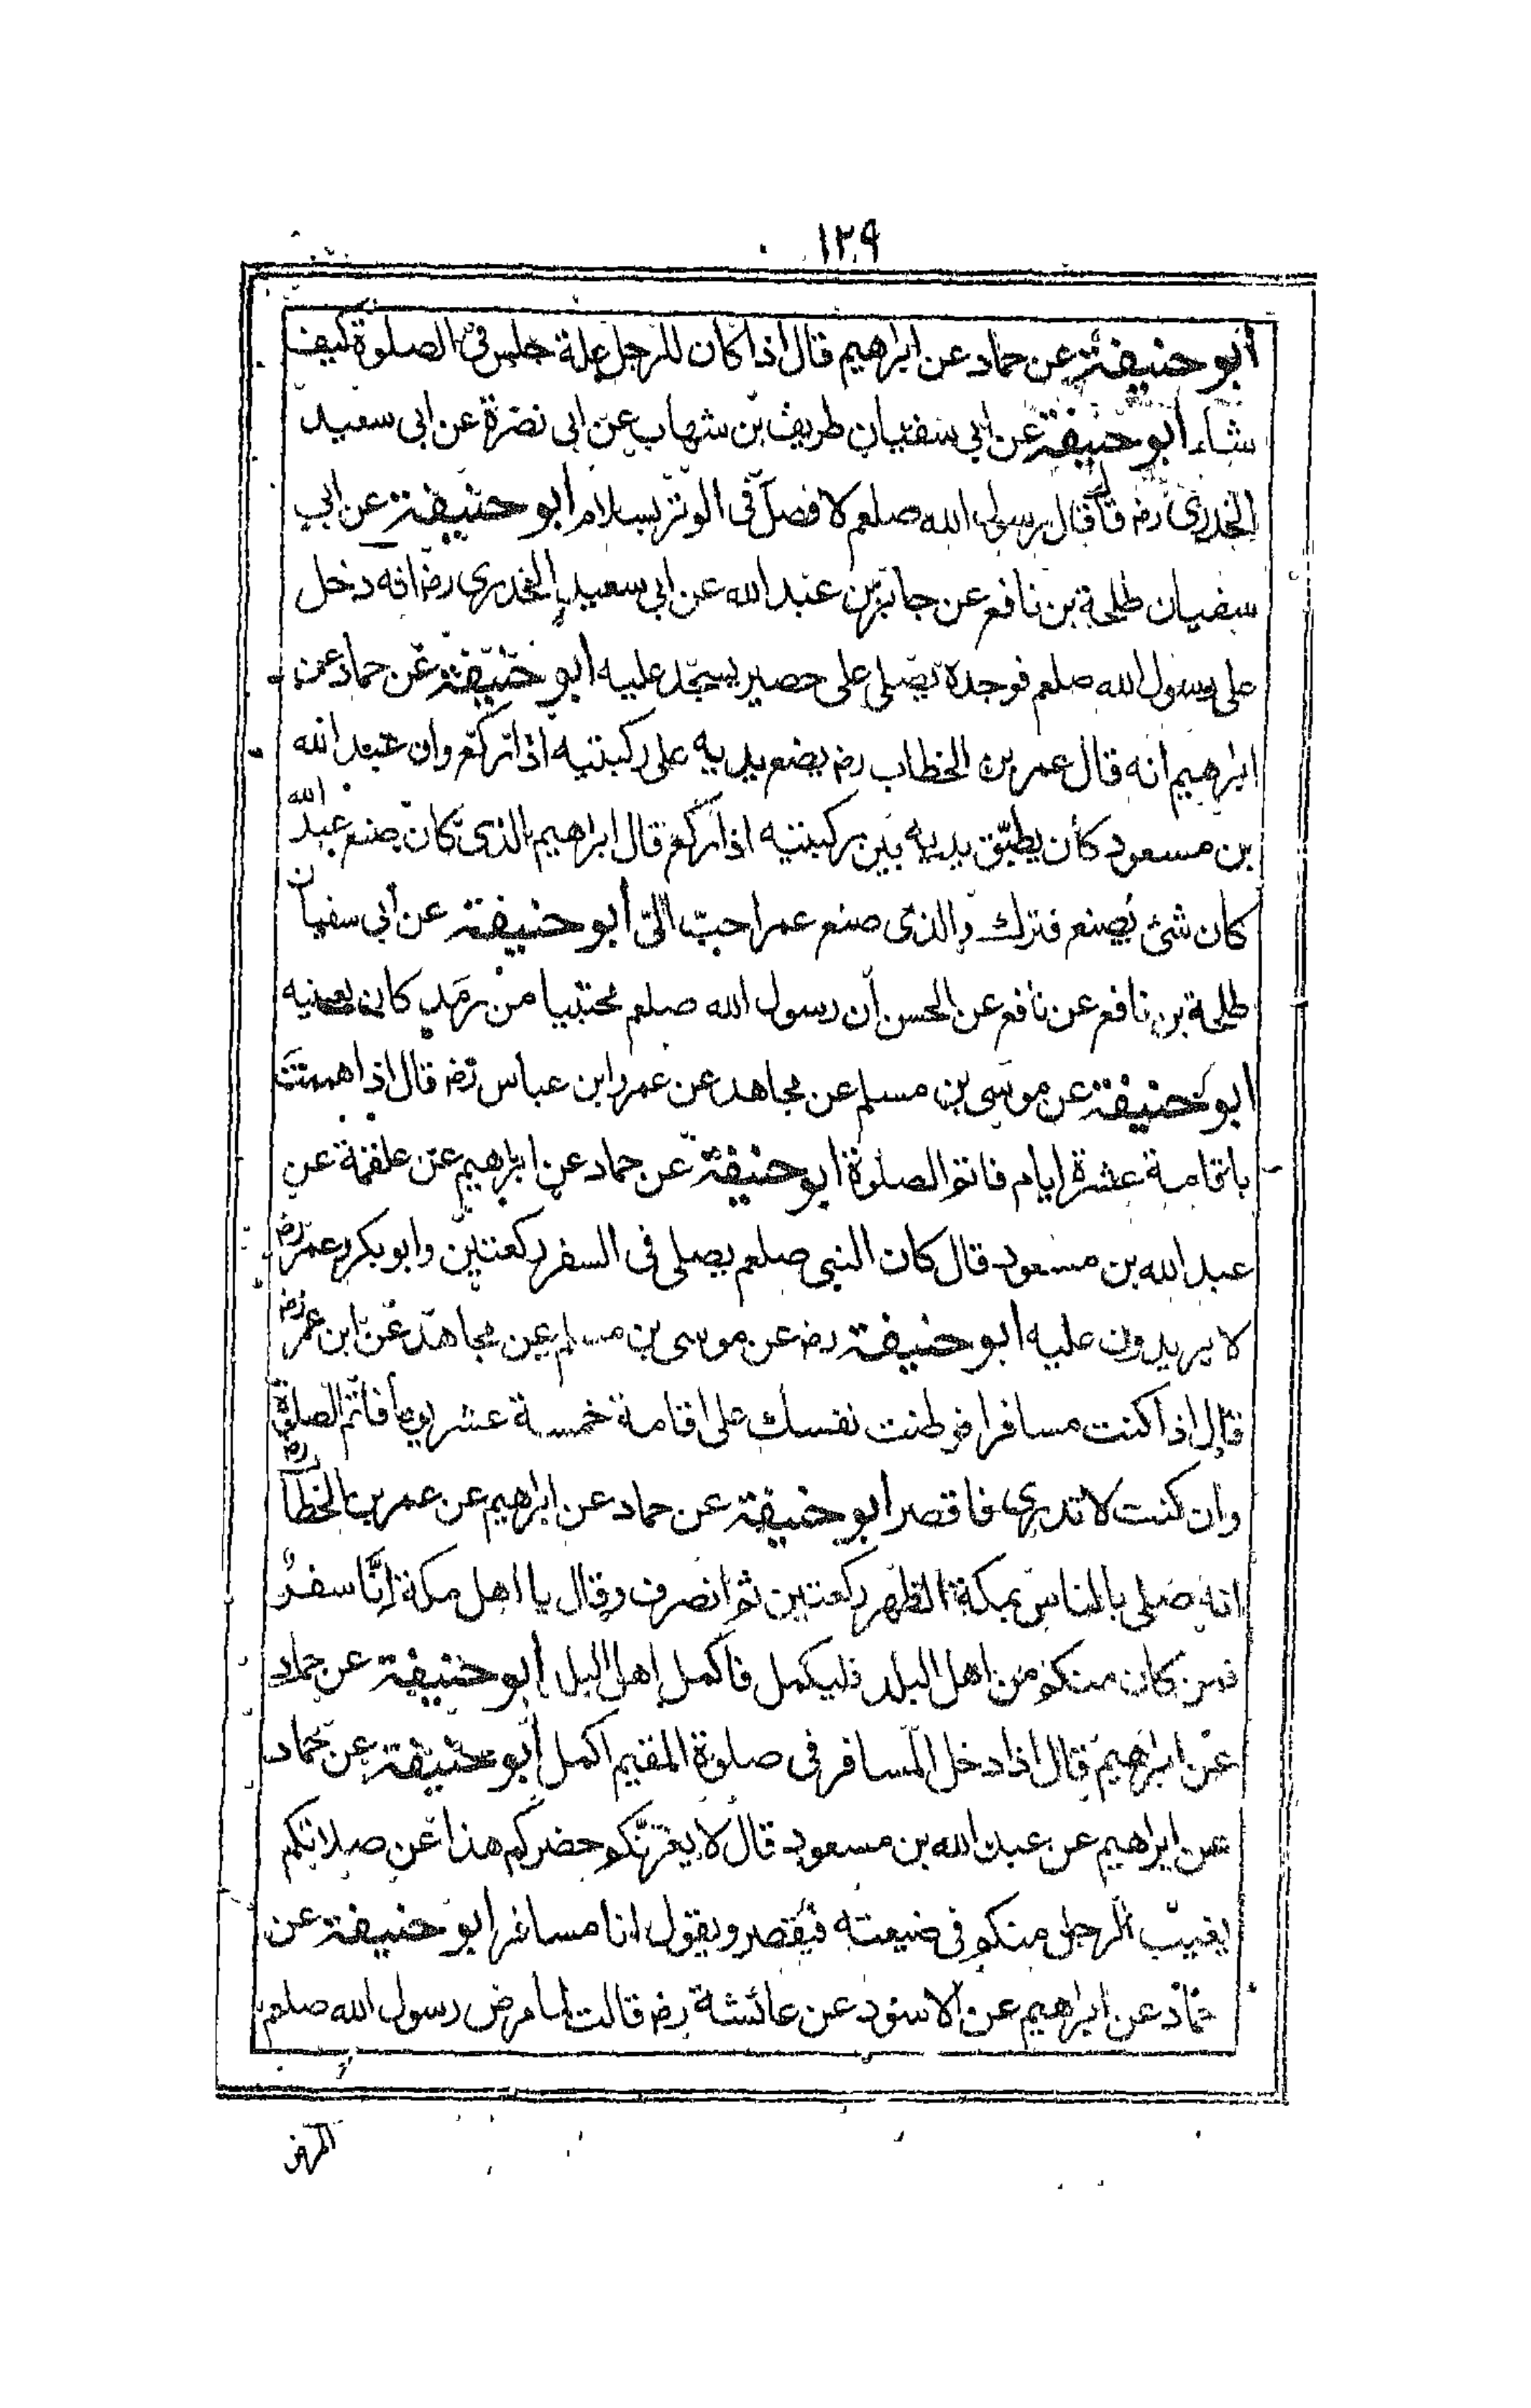 ١٢٩
أبو حنيفة عن حماد عن ابراهيم قال اذا كان للرجل علة جلس فى الصلوة كيف
شاء أبو حنيفة عن ابي سفيان طريف بن شهاب عن ابى نضرة عن ابى سعيد
الخدرى رضـ قال قال رسول الله صلعم لا فصل فى الوتر بسلام ابو حنيفة عن ابي
سفيان طلحة بن نافع عن جابر بن عبد الله عن ابي سعيد الخدرى رضـ انه دخل
على رسول الله صلعم فوجده يصلى على حصير يسجد عليه ابو حنيفة عن حماد عن
ابراهيم انه قال عمر بن الخطاب رضـ يضع يديه على ركبتيه اذا ركع وان عبد الله
بن مسعود كان يطبّق يديه بين ركبتيه اذا ركع قال ابراهيم الذى كان صنع عبد الله
كان شئ يصنع فترك والذى صنع عمر احبّ الىّ أبو حنيفة عن أبي سفيان
طلحة بن نافع عن نافع عن الحسن أن رسول الله صلعم محتبيا من رمد كان بعينيه
ابو حنيفة عن موسى بن مسلم عن مجاهد عن عمر وابن عباس رضـ قال اذا هممت
باقامة عشرة ايام فاتم الصلوة ابو حنيفة عن حماد عن ابراهيم عن علقمة عن
عبد الله بن مسعود قال كان النبى صلعم يصلى فى السفر ركعتين وابو بكر وعمر رضـ
لا يريدون عليه ابو حنيفة رضـ عن موسى بن مسلم عن مجاهد عن ابن عمر رضـ
قال اذا كنت مسافرا فوطنت نفسك على اقامة خمسة عشر يوما فأتم الصلوة
وان كنت لا تدرى فاقصر ابو حنيفة عن حماد عن ابراهيم عن عمر بن الخطاب رضـ
انه صلى بالناس بمكة الظهر ركعتين ثم انصرف وقال يا اهل مكة إنّا سفرٌ
فمن كان منكم من اهل البلد فليكمل فاكمل اهل البلد ابو حنيفة عن حماد
عن ابراهيم قال اذا دخل المسافر فى صلوة المقيم اكمل أبو حنيفة عن حماد
عن ابراهيم عن عبد الله بن مسعود قال لا يغرّنّكم حضركم هذا عن صلاتكم
يغيب الرجل منكم فى ضيعته فيقصر ويقول انا مسافر ابو حنيفة عن
حماد عن ابراهيم عن الاسود عن عائشة رضـ قالت لما مرض رسول الله صلعم
المرض